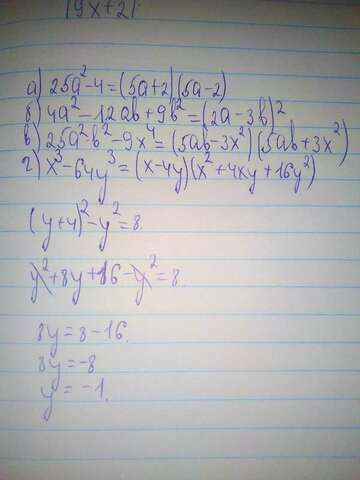 |9x+2|
а) 25a²-4=(5a+2)(5a-2)
б) 4a²-12ab+9b²=(2a-3b)²
в) 25a²b²-9x⁴=(5ab-3x²)(5ab+3x²)
г) x³-64y³=(x-4y)(x²+4xy+16y²)
(y+4)²-y²=8.
y²+8y+16-y²=8.
8y=8-16.
8y=-8
y=-1.